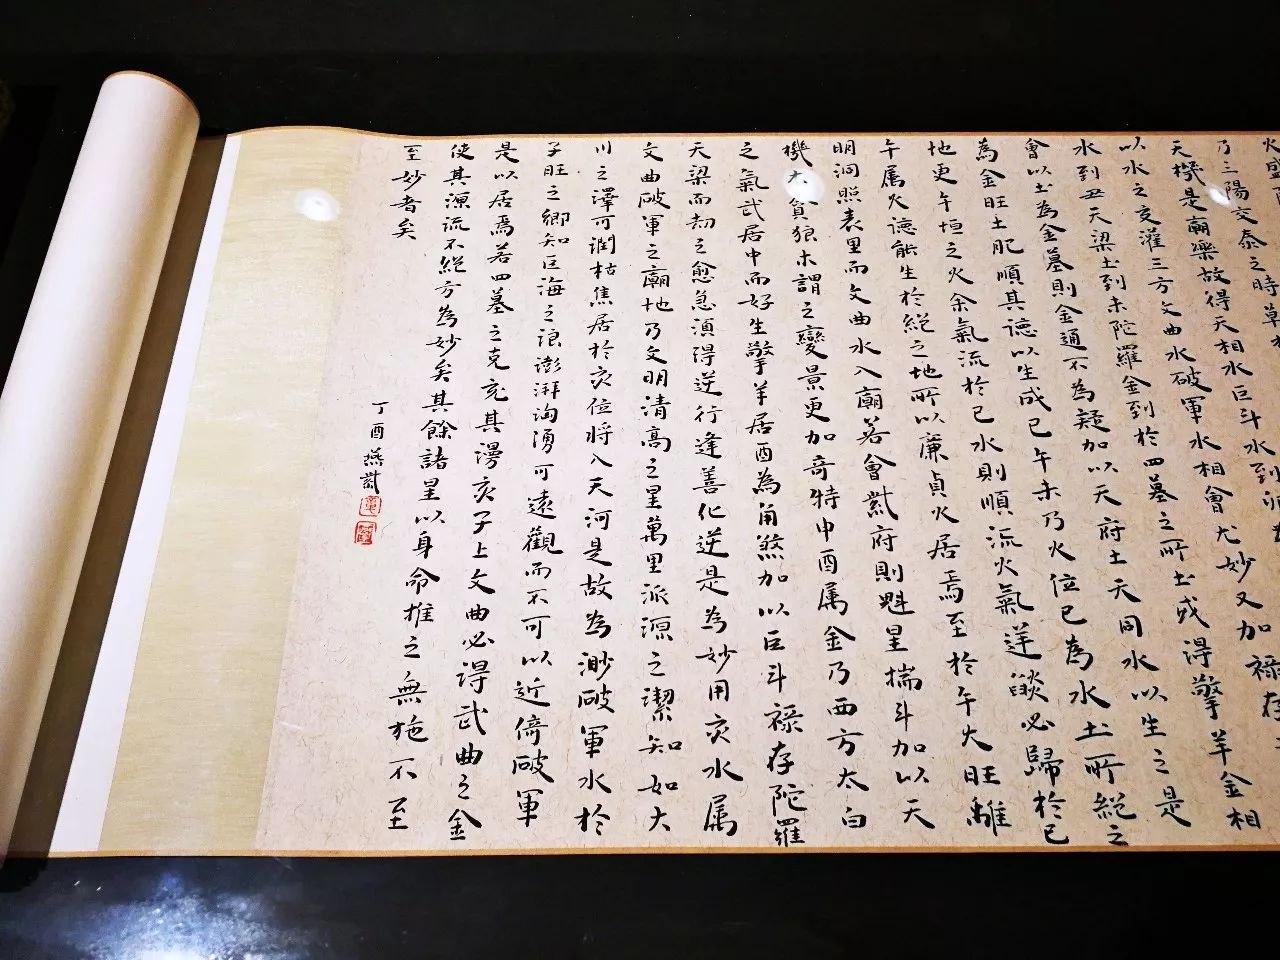 火盛
乃三陽交泰之時草
天機是廟樂故得天相水巨斗水到
以水之支灌三方文曲水破軍水相會尤妙又加祿存
水到丑天梁土到未陀羅金到於四墓之所土或得擎羊金相
會以土為金墓則金通不為疑加以天府土天同水以生之是
為金旺土肥順其德以生成巳午未乃火位巳為水土所絕之
地更午垣之火余氣流於巳水則順流火氣逆燄必歸於巳
午属火德能生於絕之地所以廉貞火居焉至於午火旺離
明洞照表里而文曲水入廟若會紫府則魁星揣斗加以天
機木貪狼木謂之變景更加奇特申酉属金乃西方太白
之氣武居申而好生擎羊居酉為用煞加以巨斗祿存陀羅
天梁而劫之愈急須得逆行逢善化逆是為妙用亥水属
文曲破軍之廟地乃文明清高之星萬里派源之潔知如大
川之澤可潤枯焦居於亥位将入天河是故為渺破軍水於
子旺之鄉知巨海之浪澎湃洶湧可遠觀而不可以近倚破軍
是以居焉若四墓之克充其漫亥子上文曲必得武曲之金
使其源流不絕方為妙矣其餘諸星以身命推之無施不至
至妙者矣
丁酉燕